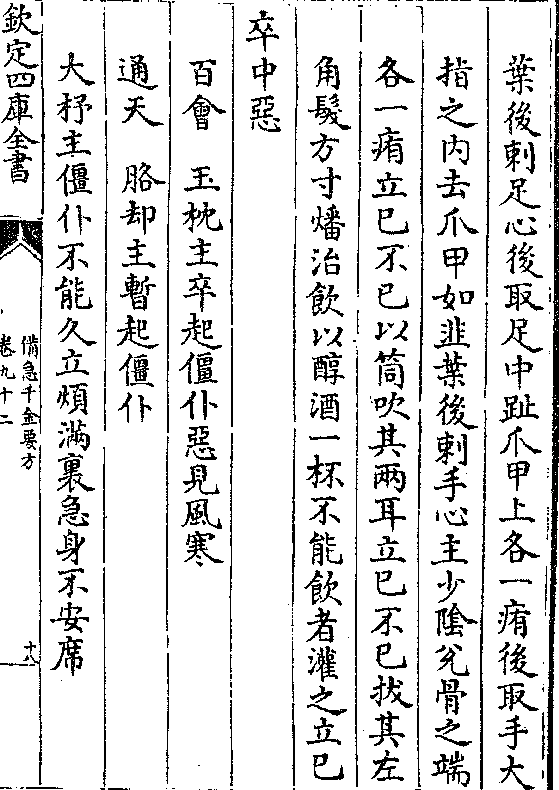 葉後刺足心後取足中趾爪甲上各一痏後取手大
指之内去爪甲如韭葉後刺手心主少隂兊骨之端
各一痏立已不已以筒吹其兩耳立已不已拔其左
角髮方寸燔治飲以醇酒一杯不能飲者灌之立已
卒中惡
百會　玉枕主卒起僵仆惡見風寒
通天　胳却主暫起僵仆
大杼主僵仆不能久立煩滿裏急身不安席
欽定四庫全書
備急千金要方
卷九十二
十八